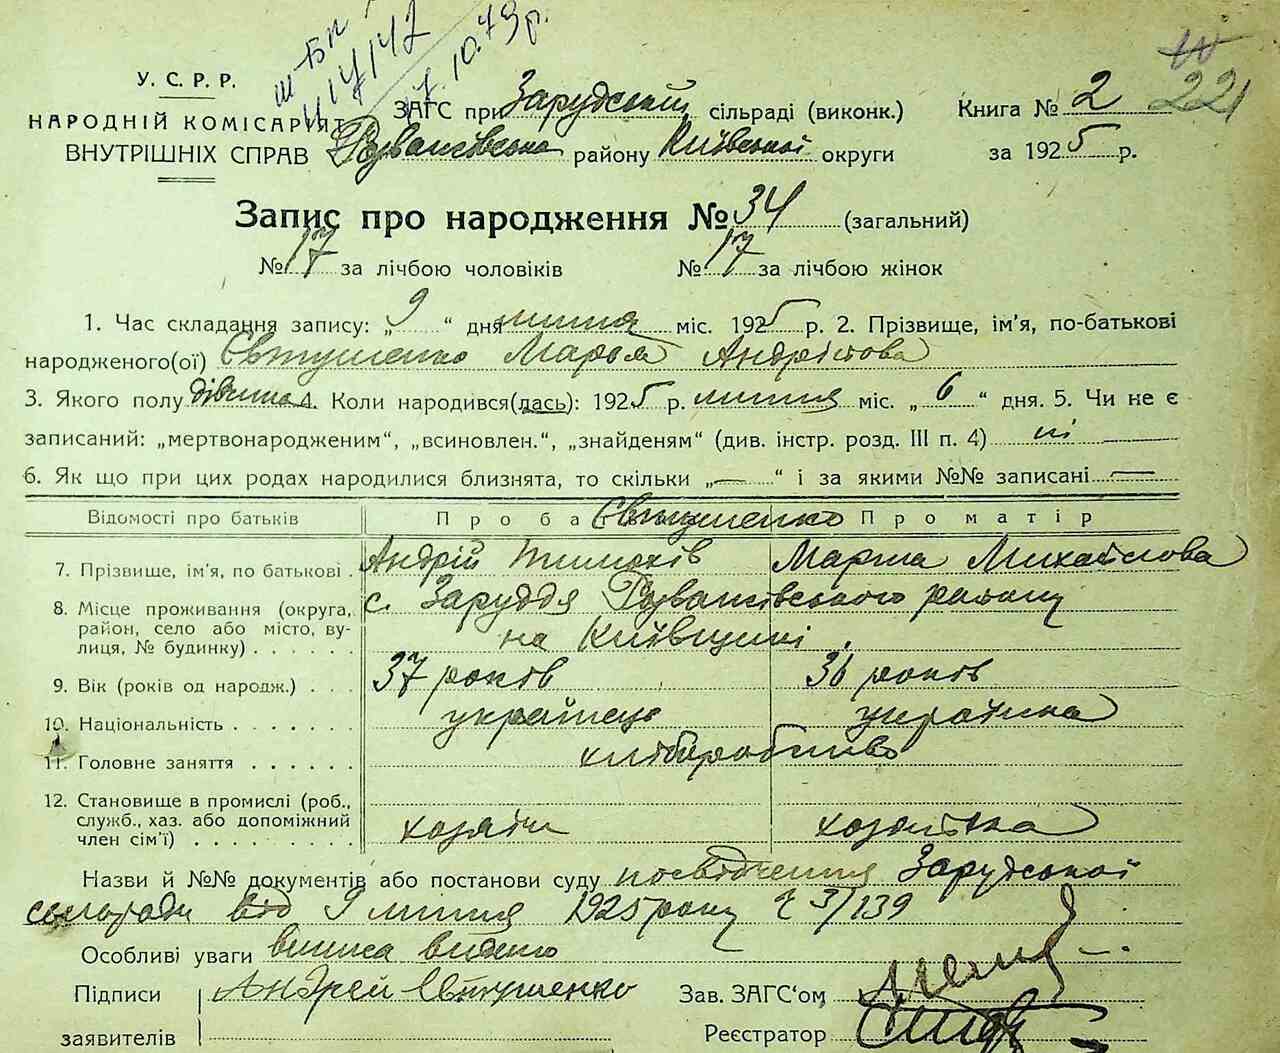 ш-БК
117147
10.79 р.
221
У. С. Р. Р.
НАРОДНІЙ КОМІСАРІЯТ
ВНУТРІШНІХ СПРАВ
ЗАГС при Зарудській сільраді (виконк.)
Книга № 2
району Київської округи
за 1925 р.
Запис про народження № 34 (загальний)
№ 17 за лічбою чоловіків № 17 за лічбою жінок
1. Час складання запису: „ 9 “ дня липня міс. 1925 р. 2. Прізвище, ім'я, по-батькові
народженого(ої) Євтушенко Марья Андріїова
3. Якого полу дівчина 4. Коли народився(лась): 1925 р. липня міс. „ 6 “ дня. 5. Чи не є
записаний: „мертвонародженим“, „всиновлен.“, „знайденям“ (див. інстр. розд. III п. 4) ні
6. Як що при цих родах народилися близнята, то скільки „ — “ і за якими №№ записані —
Відомості про батьків Про ба Євтушенко Про матір
7. Прізвище, ім'я, по батькові . Андрій Тимохів Марта Михайлова
8. Місце проживання (округа, с. Заруддя району
район, село або місто, ву- на Київщині
лиця, № будинку) . . . . . .
9. Вік (років од народж.) . . . 37 років 36 років
10. Національність . . . . . . українець українка
11. Головне заняття . . . . . . хліборобство
12. Становище в промислі (роб.,
служб., хаз. або допоміжний хозяїн хозяйка
член сім'ї) . . . . . . . .
Назви й №№ документів або постанови суду посвідчення Зарудської
сільради від 9 липня 1925 року ч 3/139
Особливі уваги виписа видано
Підписи Андрей Євтушенко Зав. ЗАГС'ом
заявителів Реєстратор